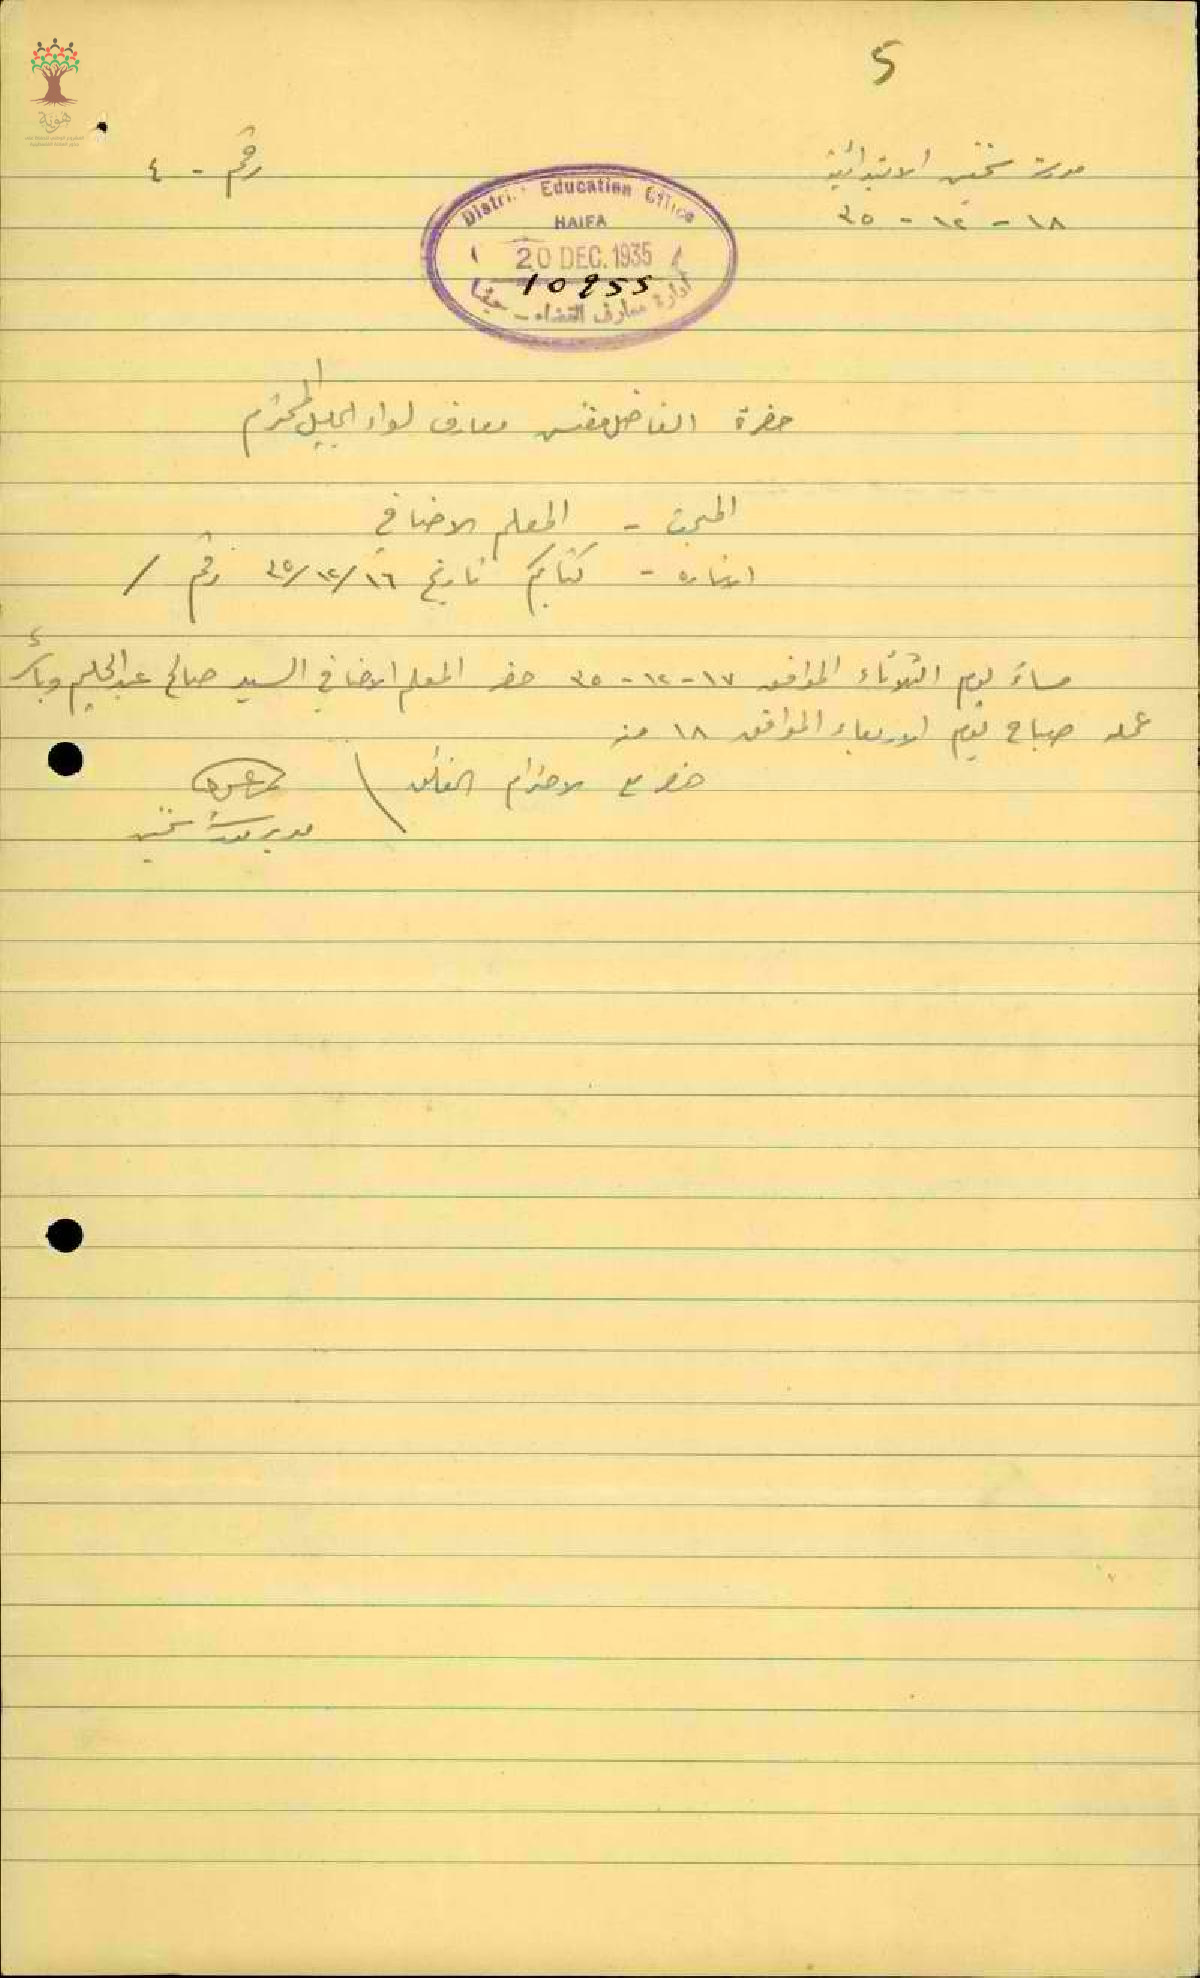 5
مدرسة سخنين الابتدائية
رقم - ٤
١٨ - ١٢ - ٣٥
District Education Office
HAIFA
20 DEC. 1935
10955
ادارة معارف القضاء - حيفا
هوية
حضرة الفاضل مفتش معارف لواء الجليل المحترم
المبحث - المعلم الاضافي
الاشارة - كتابكم تاريخ ١٦/١٢/٣٥ رقم /
مساء يوم الثلاثاء الموافق ١٧-١٢-٣٥ حضر المعلم الاضافي السيد صالح عبد الحليم وباشر
عمله صباح يوم الاربعاء الموافق ١٨ منه
مع الاحترام الفائق
مدير مدرسة سخنين